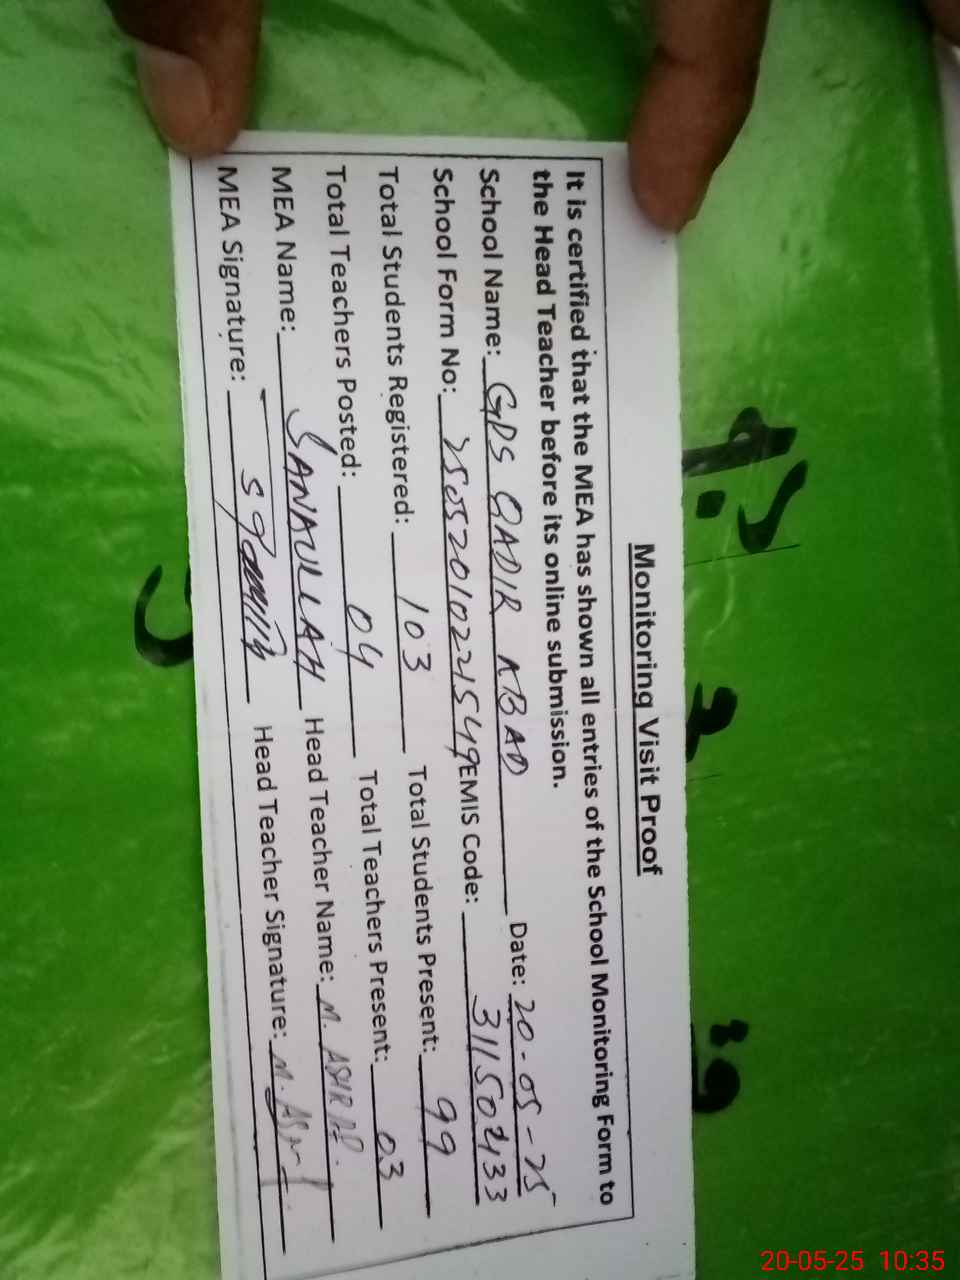 Monitoring Visit Proof
It is certified that the MEA has shown all entries of the School Monitoring Form to
the Head Teacher before its online submission.
School Name: GPS QADIR ABAD Date: 20-05-25
School Form No: 25052010221549 EMIS Code: 31150433
Total Students Registered: 103 Total Students Present: 99
Total Teachers Posted: 04 Total Teachers Present: 03
MEA Name: SANAULLAH Head Teacher Name: M.
MEA Signature: Head Teacher Signature: M.
20-05-25 10:35